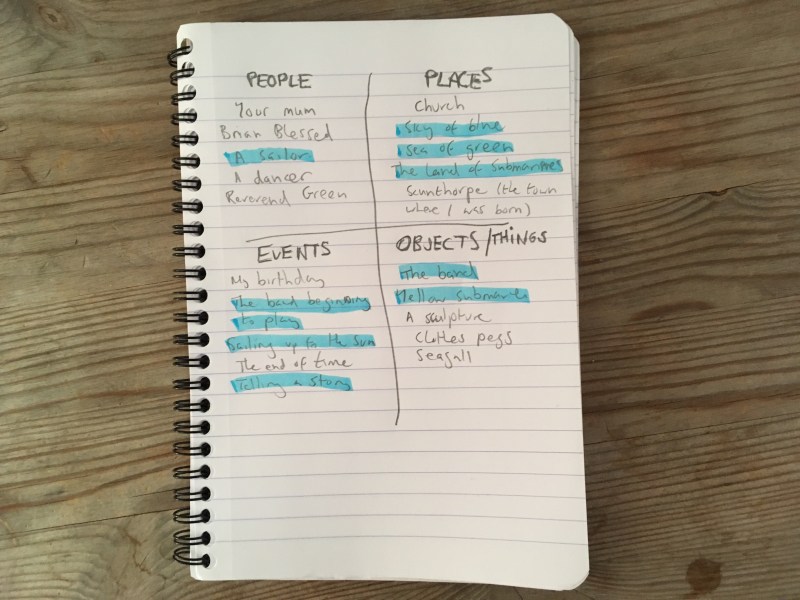 PEOPLE
Your mum
Brian Blessed
A sailor
A dancer
Reverend Green
PLACES
Church
Sky of blue
Sea of green
The Land of Submarines
Scunthorpe (the town
where I was born)
EVENTS
My birthday
The band beginning
to play
Sailing up to the sun
The end of time
Telling a story
OBJECTS/THINGS
The band
Yellow submarine
A sculpture
Clothes pegs
Seagull